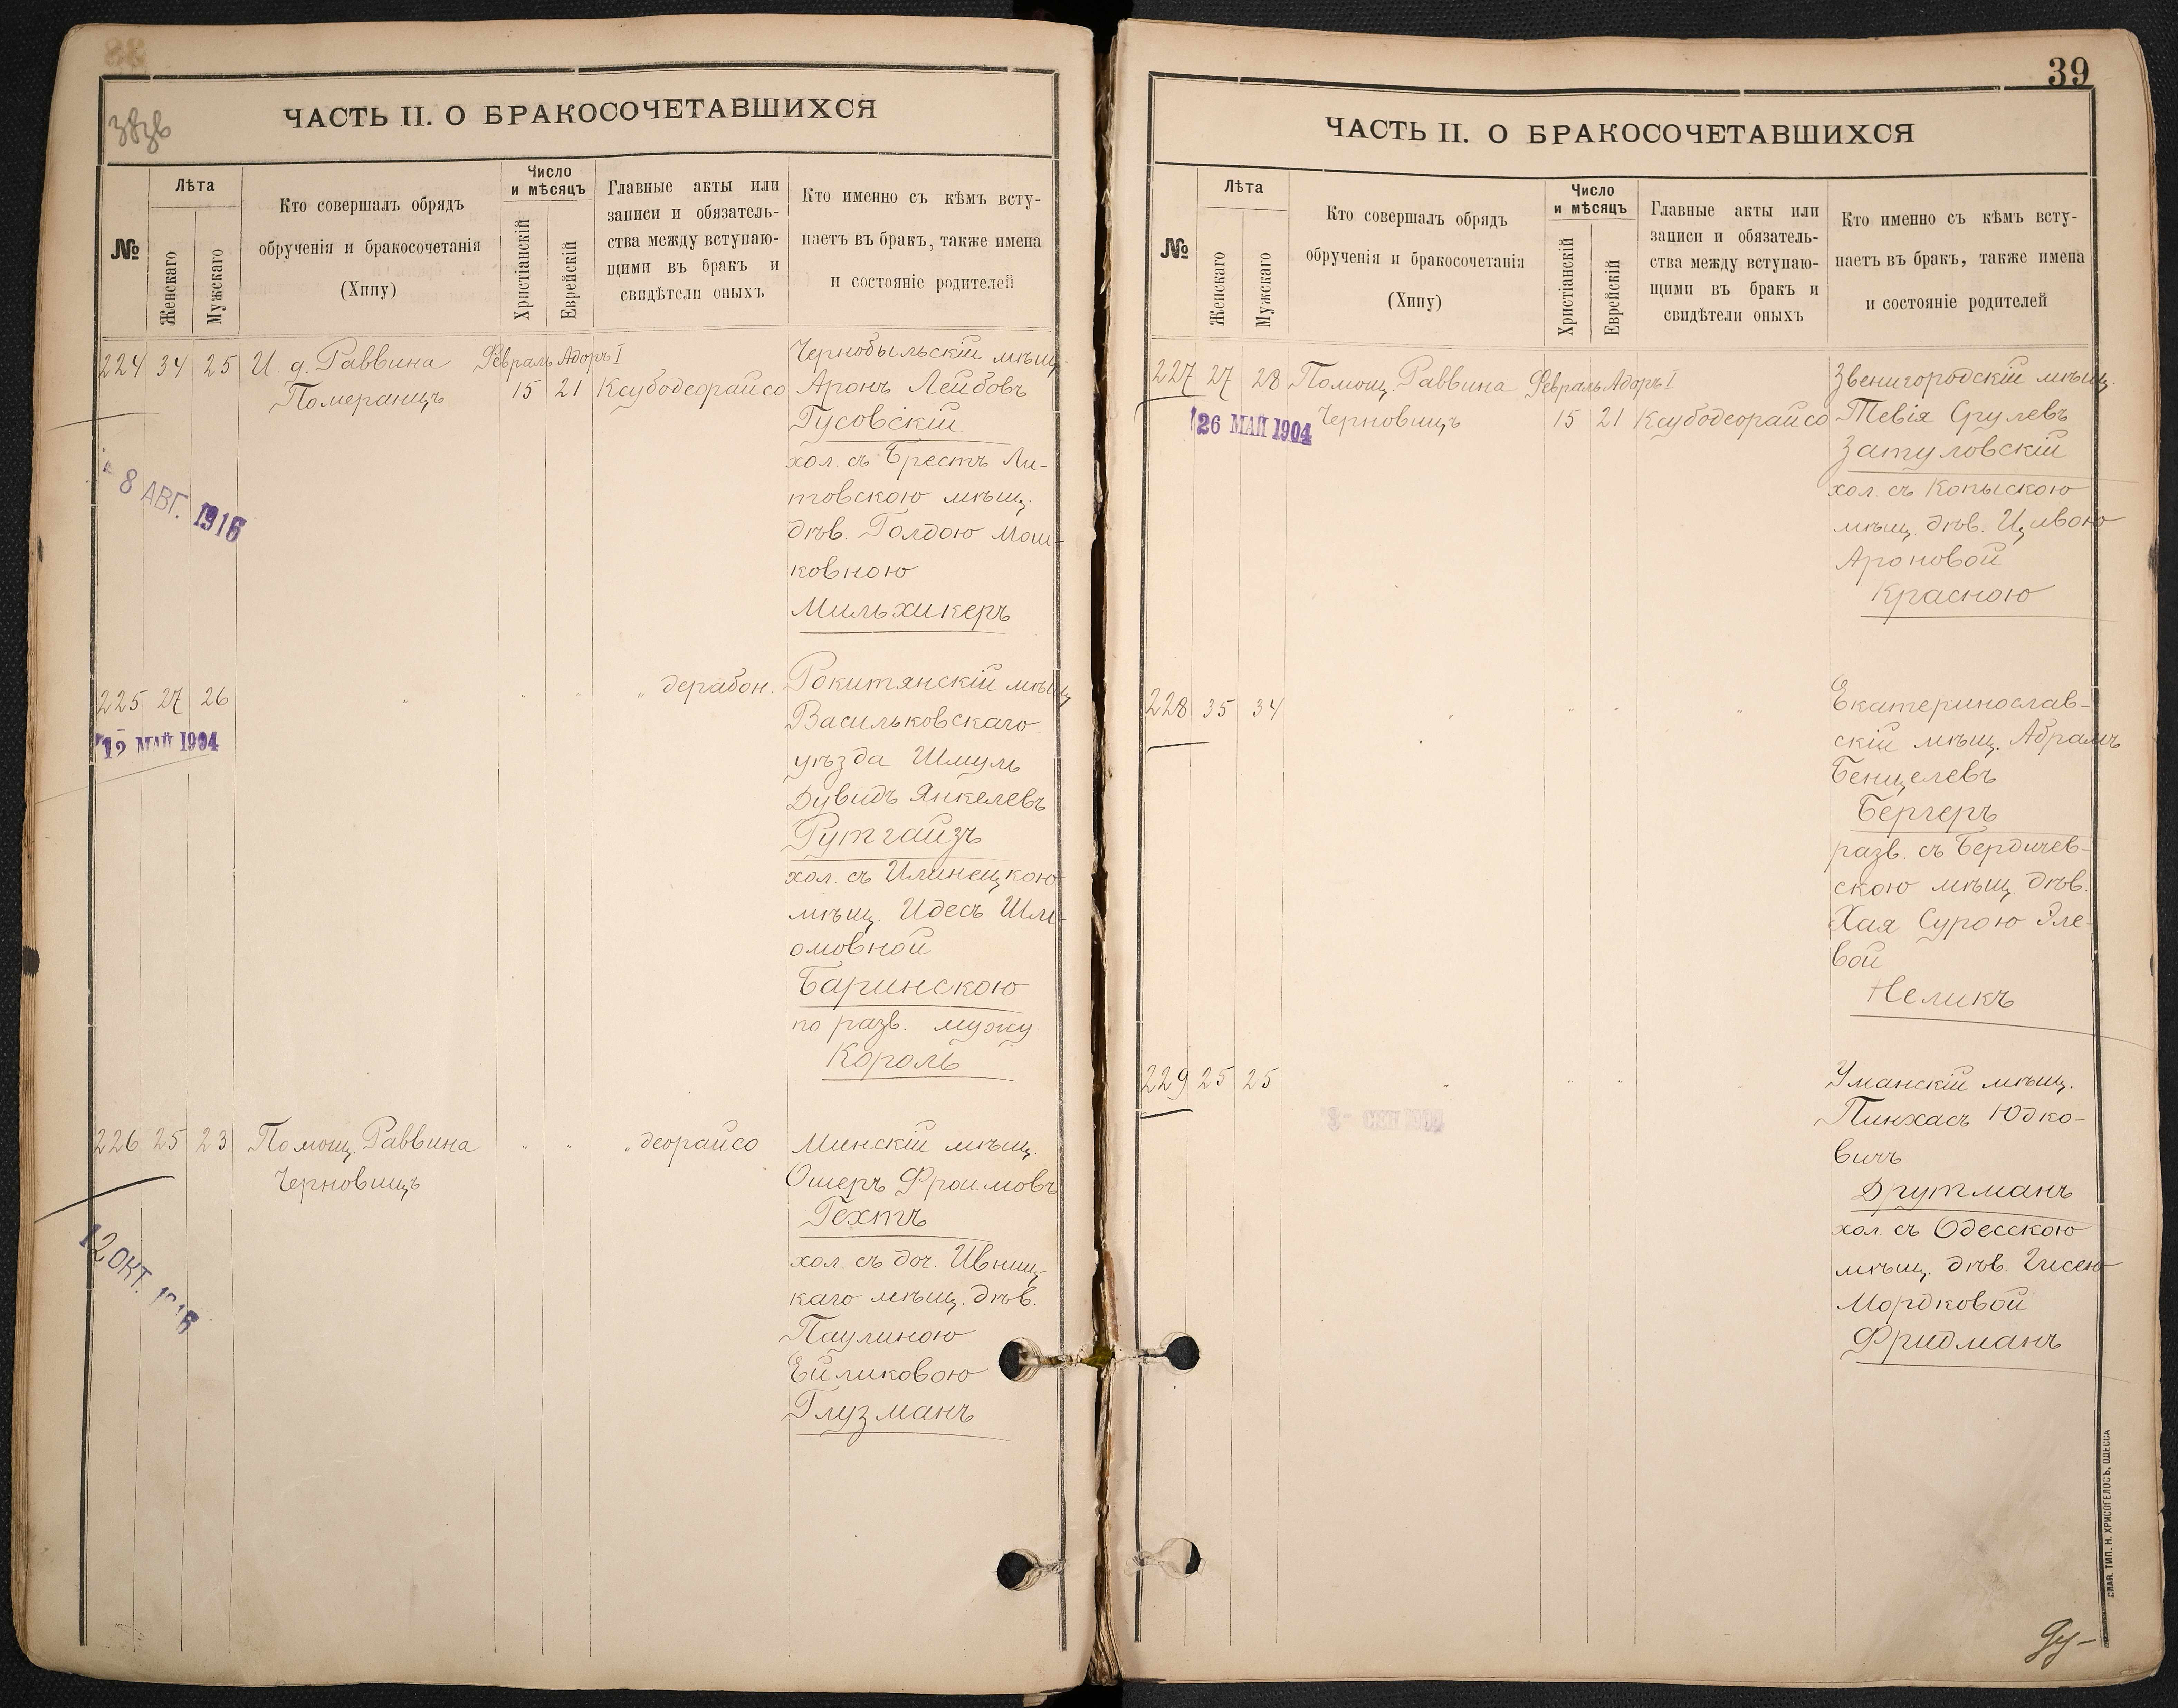 ЧАСТЬ II. О БРАКОСОЧЕТАВШИХСЯ
№
Лѣта
Женскаго
Мужскаго
Кто совершалъ обрядъ
обрученія и бракосочетанія
(Хипу)
Число
и мѣсяцъ
Христіанскій
Еврейскій
Главные акты или
записи и обязатель-
ства между вступаю-
щими въ бракъ и
свидѣтели оныхъ
Кто именно съ кѣмъ всту-
паетъ въ бракъ, также имена
и состояніе родителей
224 34 25 И. д. Раввина Февраль Адоръ I Чернобыльскій мѣщ.
Померанцъ 15 21 Ксубодеорайсо Аронъ Лейбовъ
Гусовскій
хол. съ Брестъ Ли-
товскою мѣщ.
дѣв. Голдою Мош-
ковною
Мильхикеръ
8 АВГ. 1916
225 27 26 " " " " дерабон. Рокитянскій мѣщ.
12 МАЙ 1904
Васильковскаго
уѣзда Шмуль
Дувидъ Янкелевъ
Рутгайзъ
хол. съ Илинецкою
мѣщ. Идесъ Шле-
омовной
Баринскою
по разв. мужу
Король
226 25 23 Помощ. Раввина " " " деорайсо Минскій мѣщ.
Черновицъ
Ошеръ Фроимовъ
Гехтъ
хол. съ доч. Ивниц-
каго мѣщ. дѣв.
Паулиною
Ейликовою
Глузманъ
12 ОКТ.
39
ЧАСТЬ II. О БРАКОСОЧЕТАВШИХСЯ
№
Лѣта
Женскаго
Мужскаго
Кто совершалъ обрядъ
обрученія и бракосочетанія
(Хипу)
Число
и мѣсяцъ
Христіанскій
Еврейскій
Главные акты или
записи и обязатель-
ства между вступаю-
щими въ бракъ и
свидѣтели оныхъ
Кто именно съ кѣмъ всту-
паетъ въ бракъ, также имена
и состояніе родителей
227 27 28 Помощ. Раввина Февраль Адоръ I Звенигородскій мѣщ.
26 МАЙ 1904
Черновицъ 15 21 Ксубодеорайсо Тевія Срулевъ
Затуловскій
хол. съ Копыскою
мѣщ. дѣв. Цивою
Ароновой
Красною
228 35 34 " " " " Екатеринослав-
скій мѣщ. Абрамъ
Бенцелевъ
Бергеръ
разв. съ Бердичев-
скою мѣщ. дѣв.
Хая Сурою Эле-
вой
Неликъ
229 25 25 " " " " Уманскій мѣщ.
Пинхасъ Юдко-
вичъ
Друтманъ
хол. съ Одесскою
мѣщ. дѣв.
Мордковой
Фридманъ
СЛАВ. ТИП. Н. ХРИСОГЕЛОСЪ, ОДЕССА